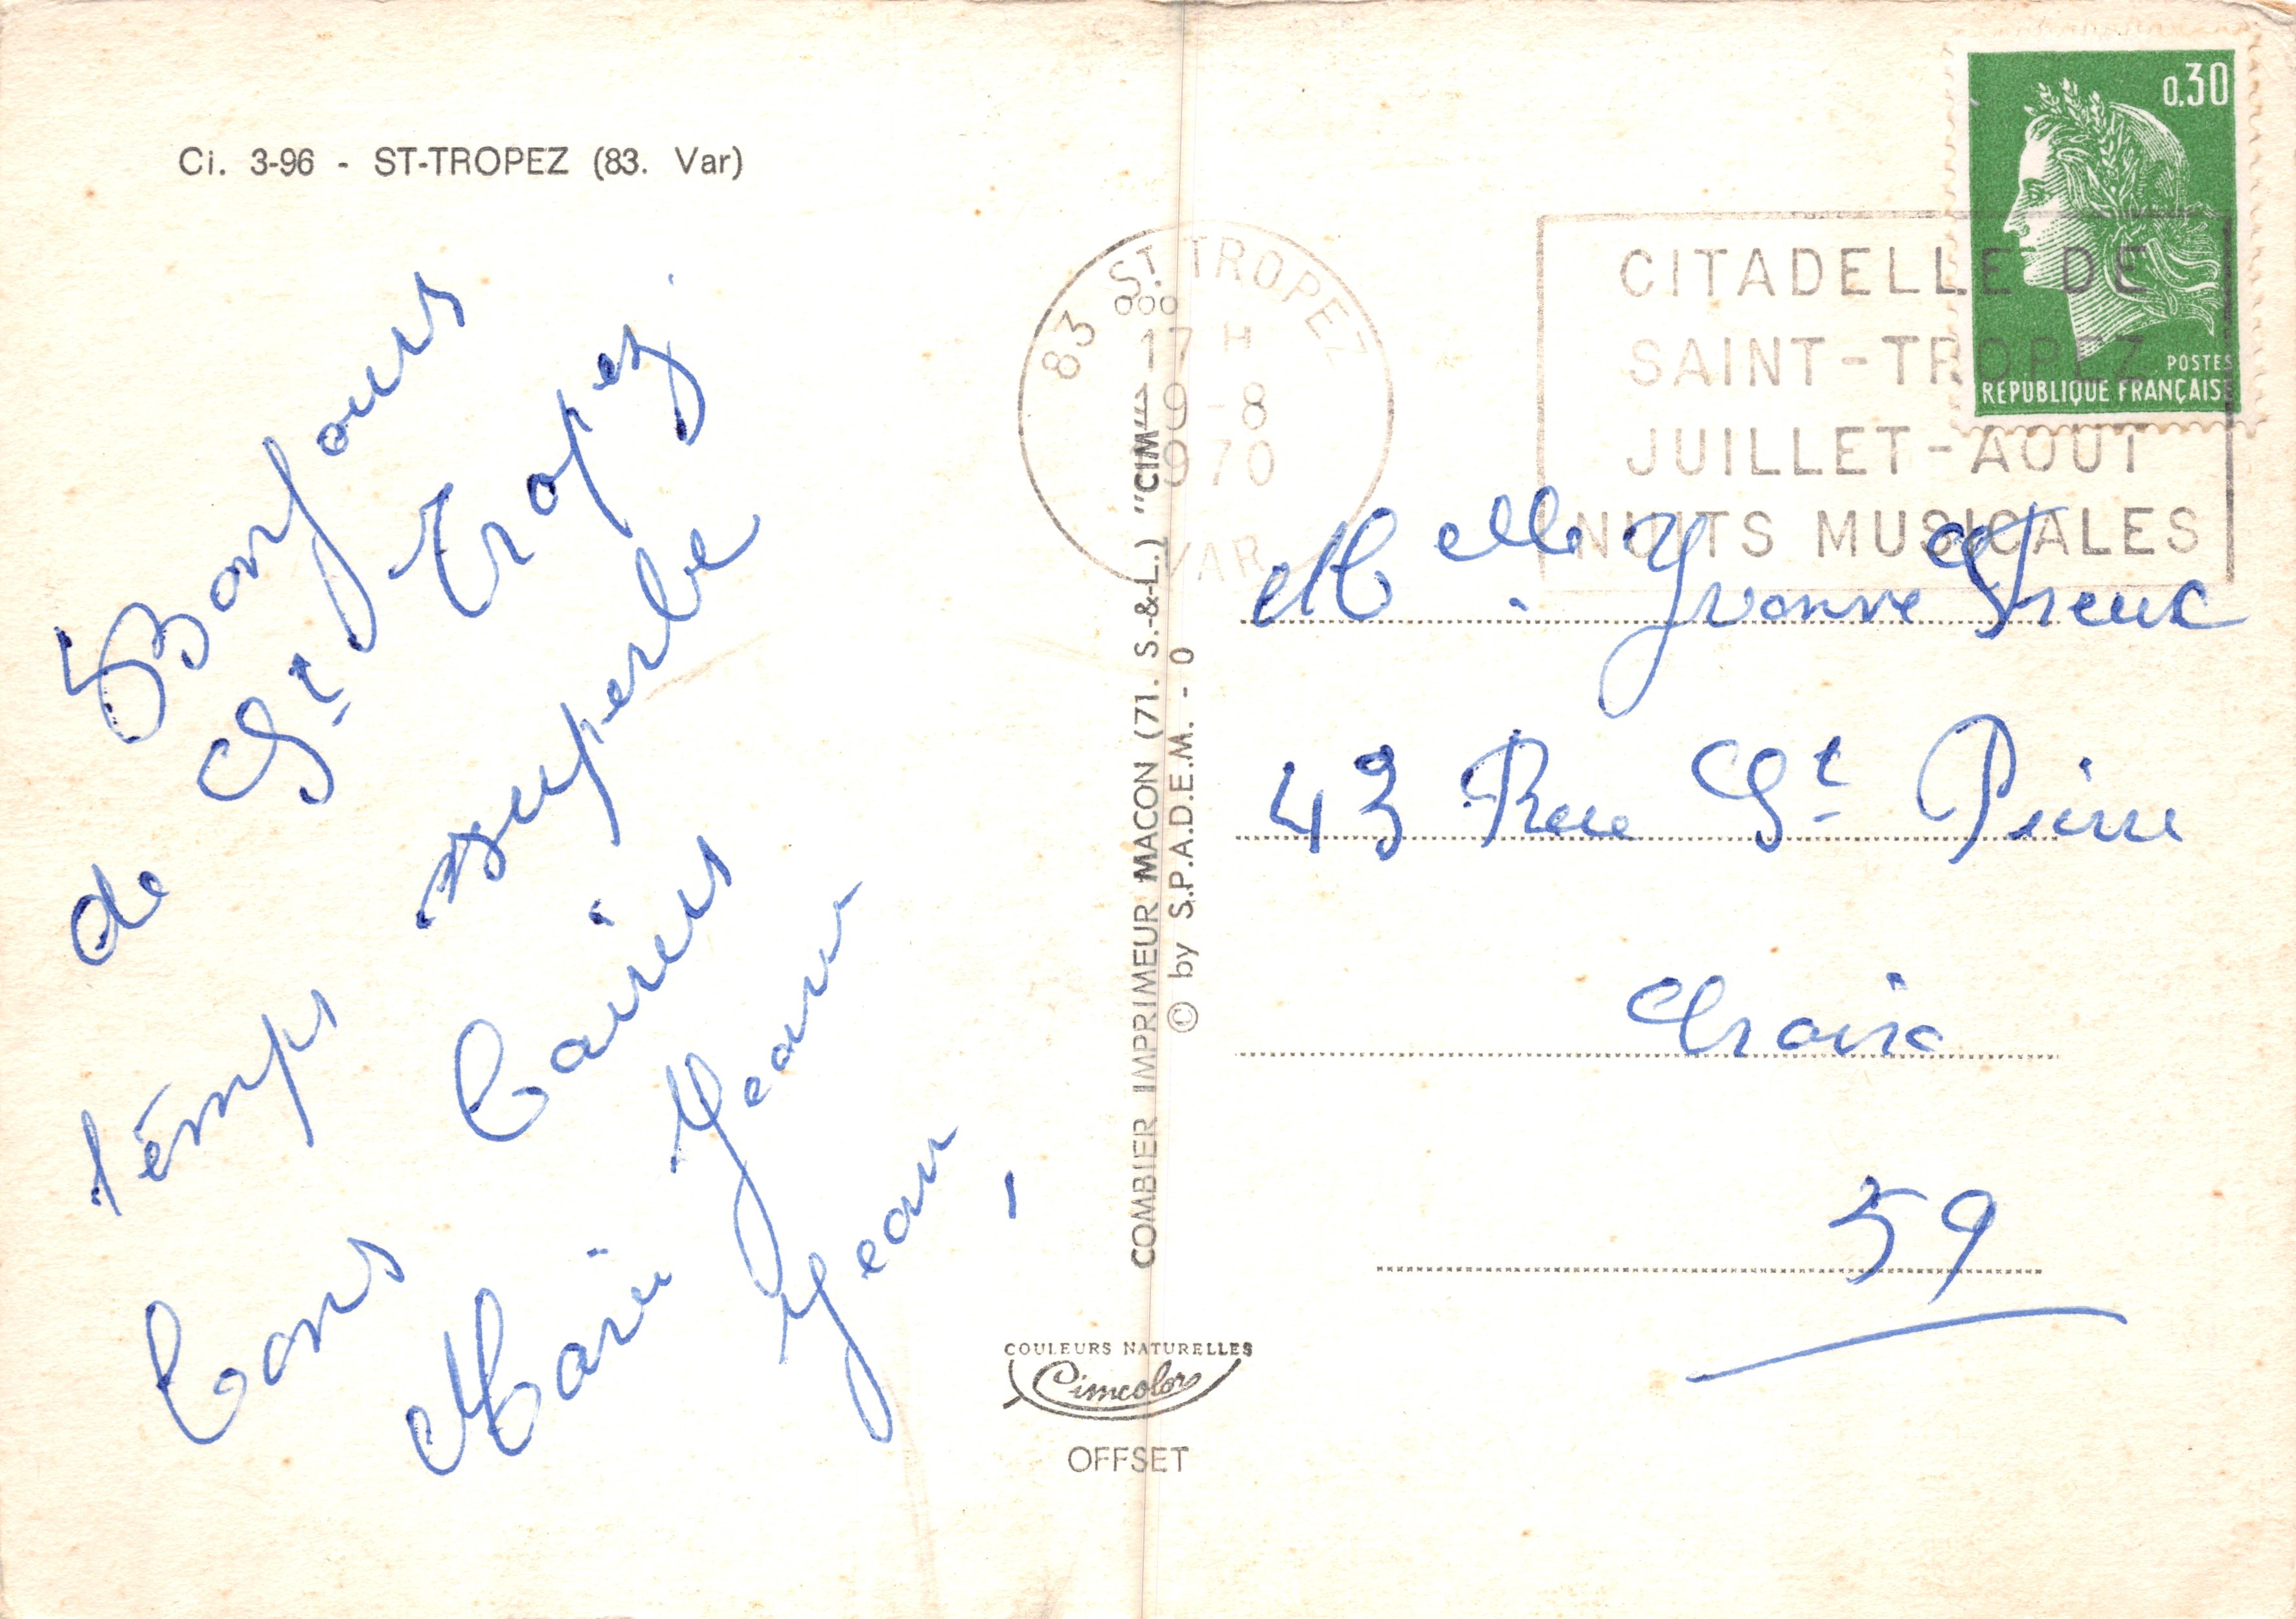 Ci. 3-96 - ST-TROPEZ (83. Var)
Bonjours
de St Tropez
témps superbe
Bons Baisers
Marie Jeanne
Jean,
COMBIER IMPRIMEUR MACON (71. S.-&-L.) "CIM"
© by S.P.A.D.E.M. - 0
COULEURS NATURELLES
Cimcolor
OFFSET
83 ST TROPEZ
17 H
9-8
1970
VAR
CITADELLE DE
SAINT-TROPEZ
JUILLET-AOUT
NUITS MUSICALES
0,30
POSTES
REPUBLIQUE FRANÇAISE
Melle Yvonne
43 Rue St Pierre
Croix
59